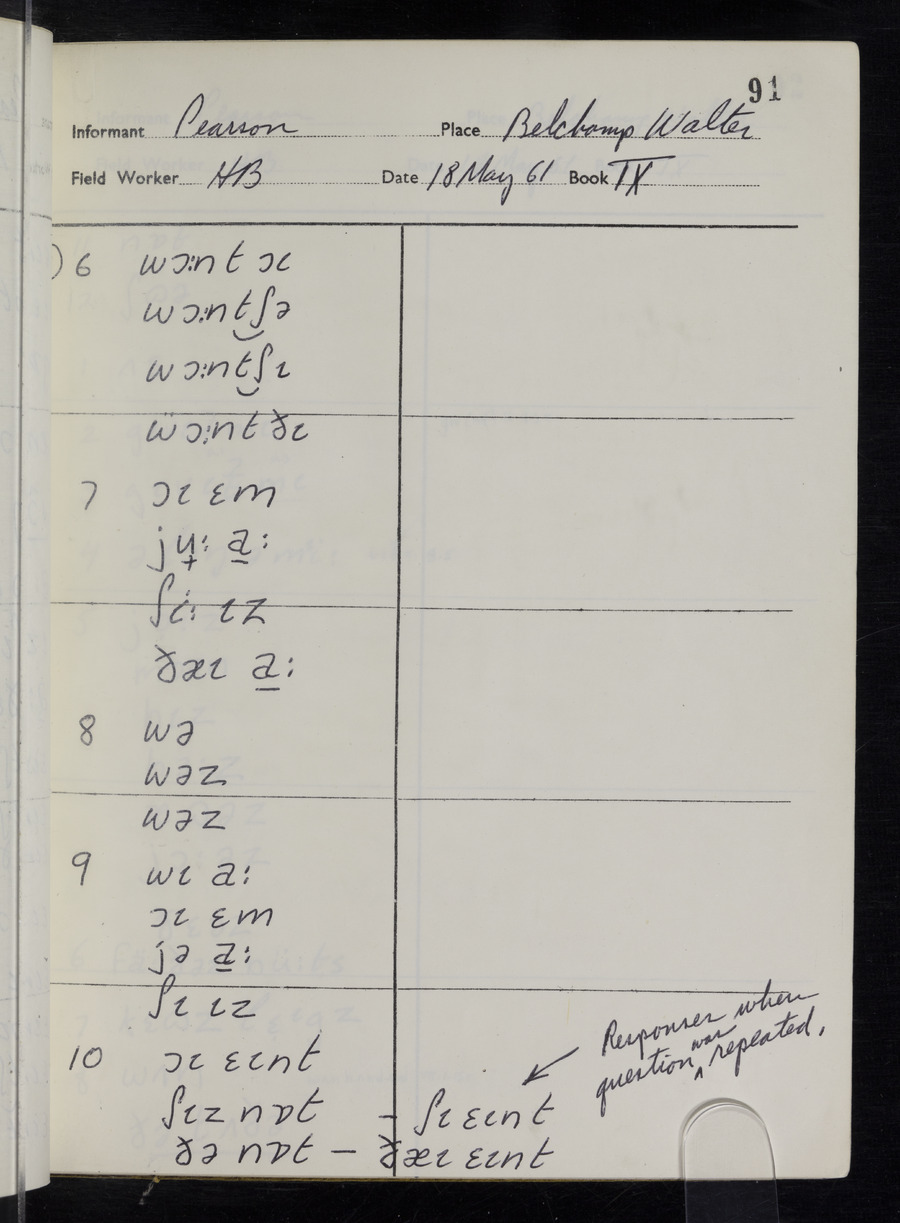 91
Informant Pearson Place Belchamp Walter
Field Worker HB Date 18 May 61 Book IX
) 6 wɔ:nt ɔɩ
wɔ:nt‿ʃə
wɔ:nt‿ʃɩ
ẅɔ:nt ðɩ
7 ɔɩ ɛm
jʉ̟: a̠:
ʃɩ̇: ɩz
ðæɩ a̠:
8 wə
wəz
wəz
9 wɩ a:
ɔɩ ɛm
jə a̠:
ʃɩ ɩz
10 ɔɩ ɛɩnt
ʃɩz nɒt – ʃɩ ɛɩnt
ðə nɒt – ðæɩ ɛɩnt
Responses when
question was ^ repeated.